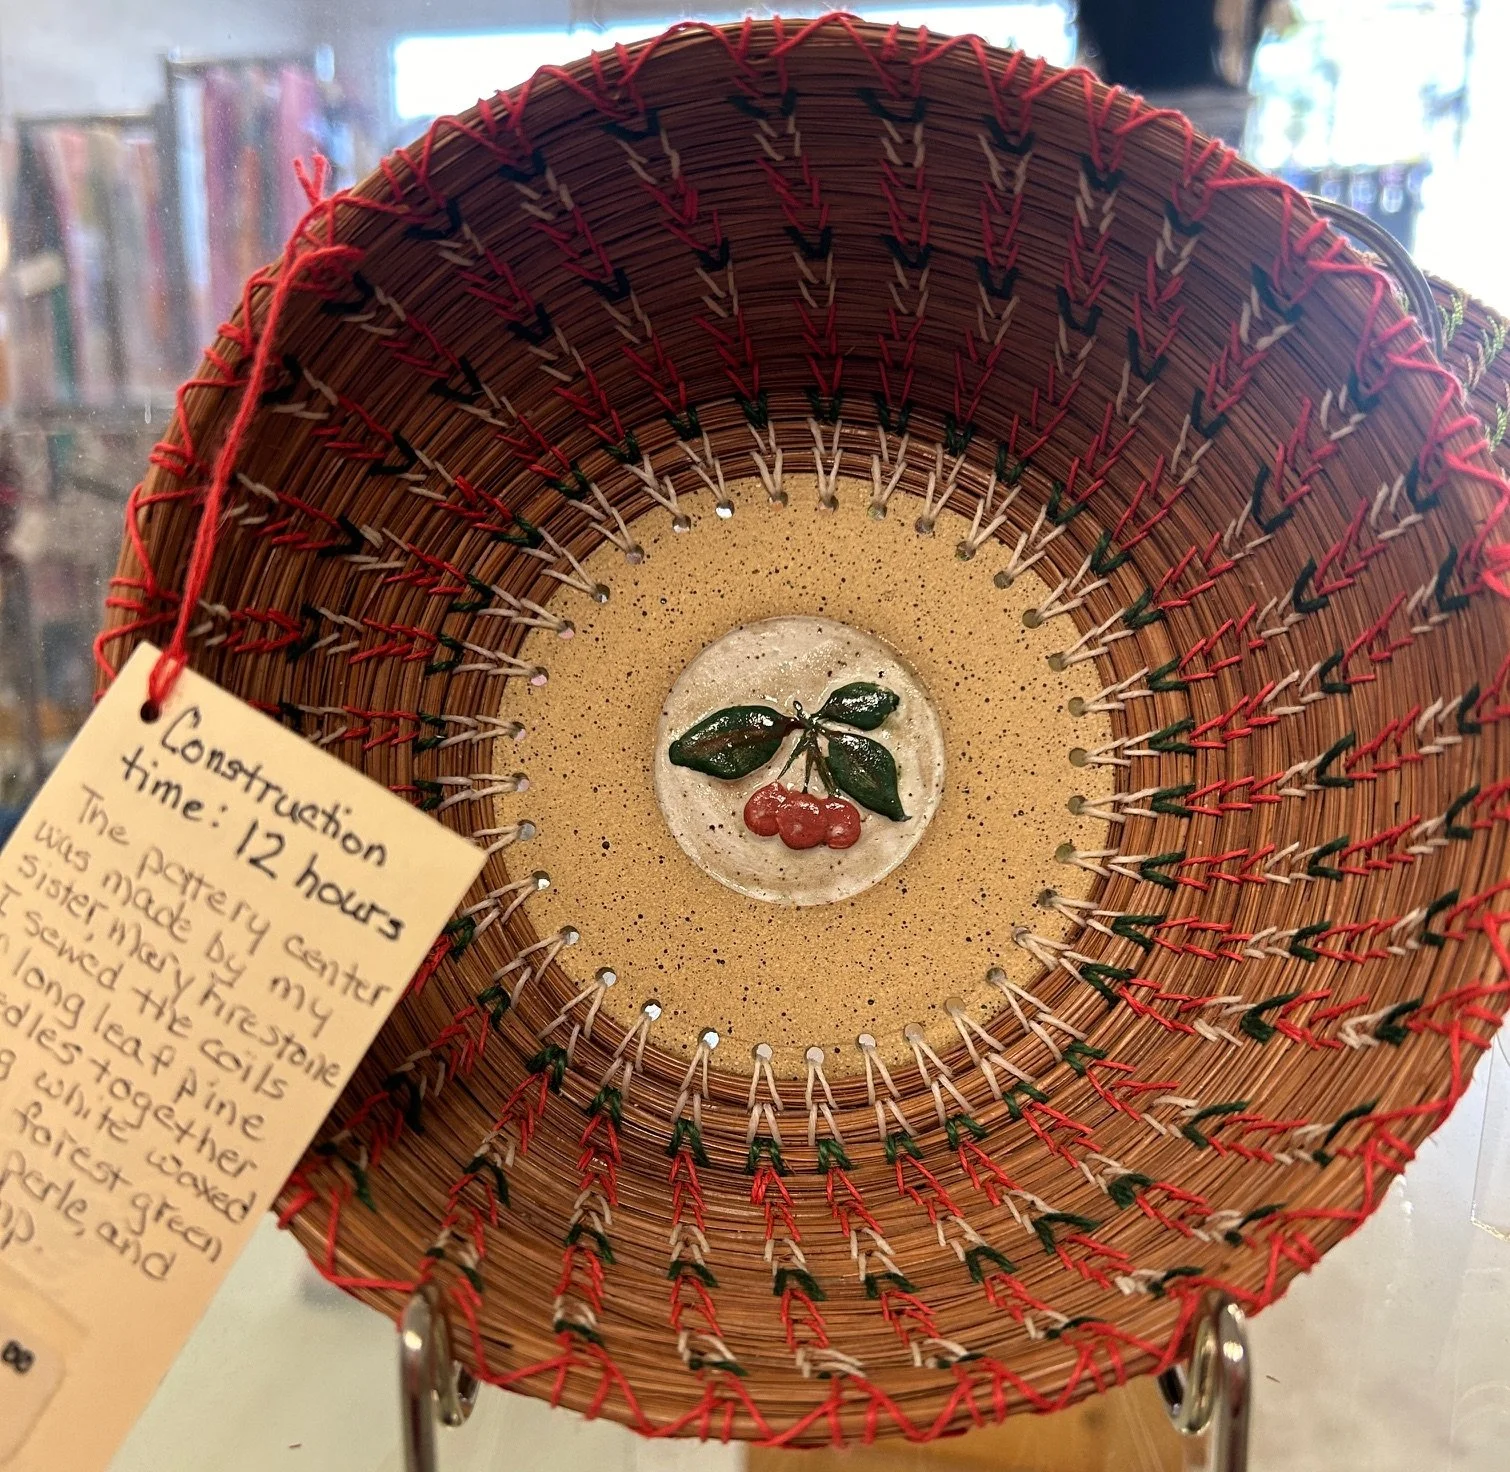 Construction
time: 12 hours
The pottery center
was made by my
sister, Mary Firestone
I sewed the coils
long leaf pine
dles together
g white waxed
forest green
perle, and
mp.
00